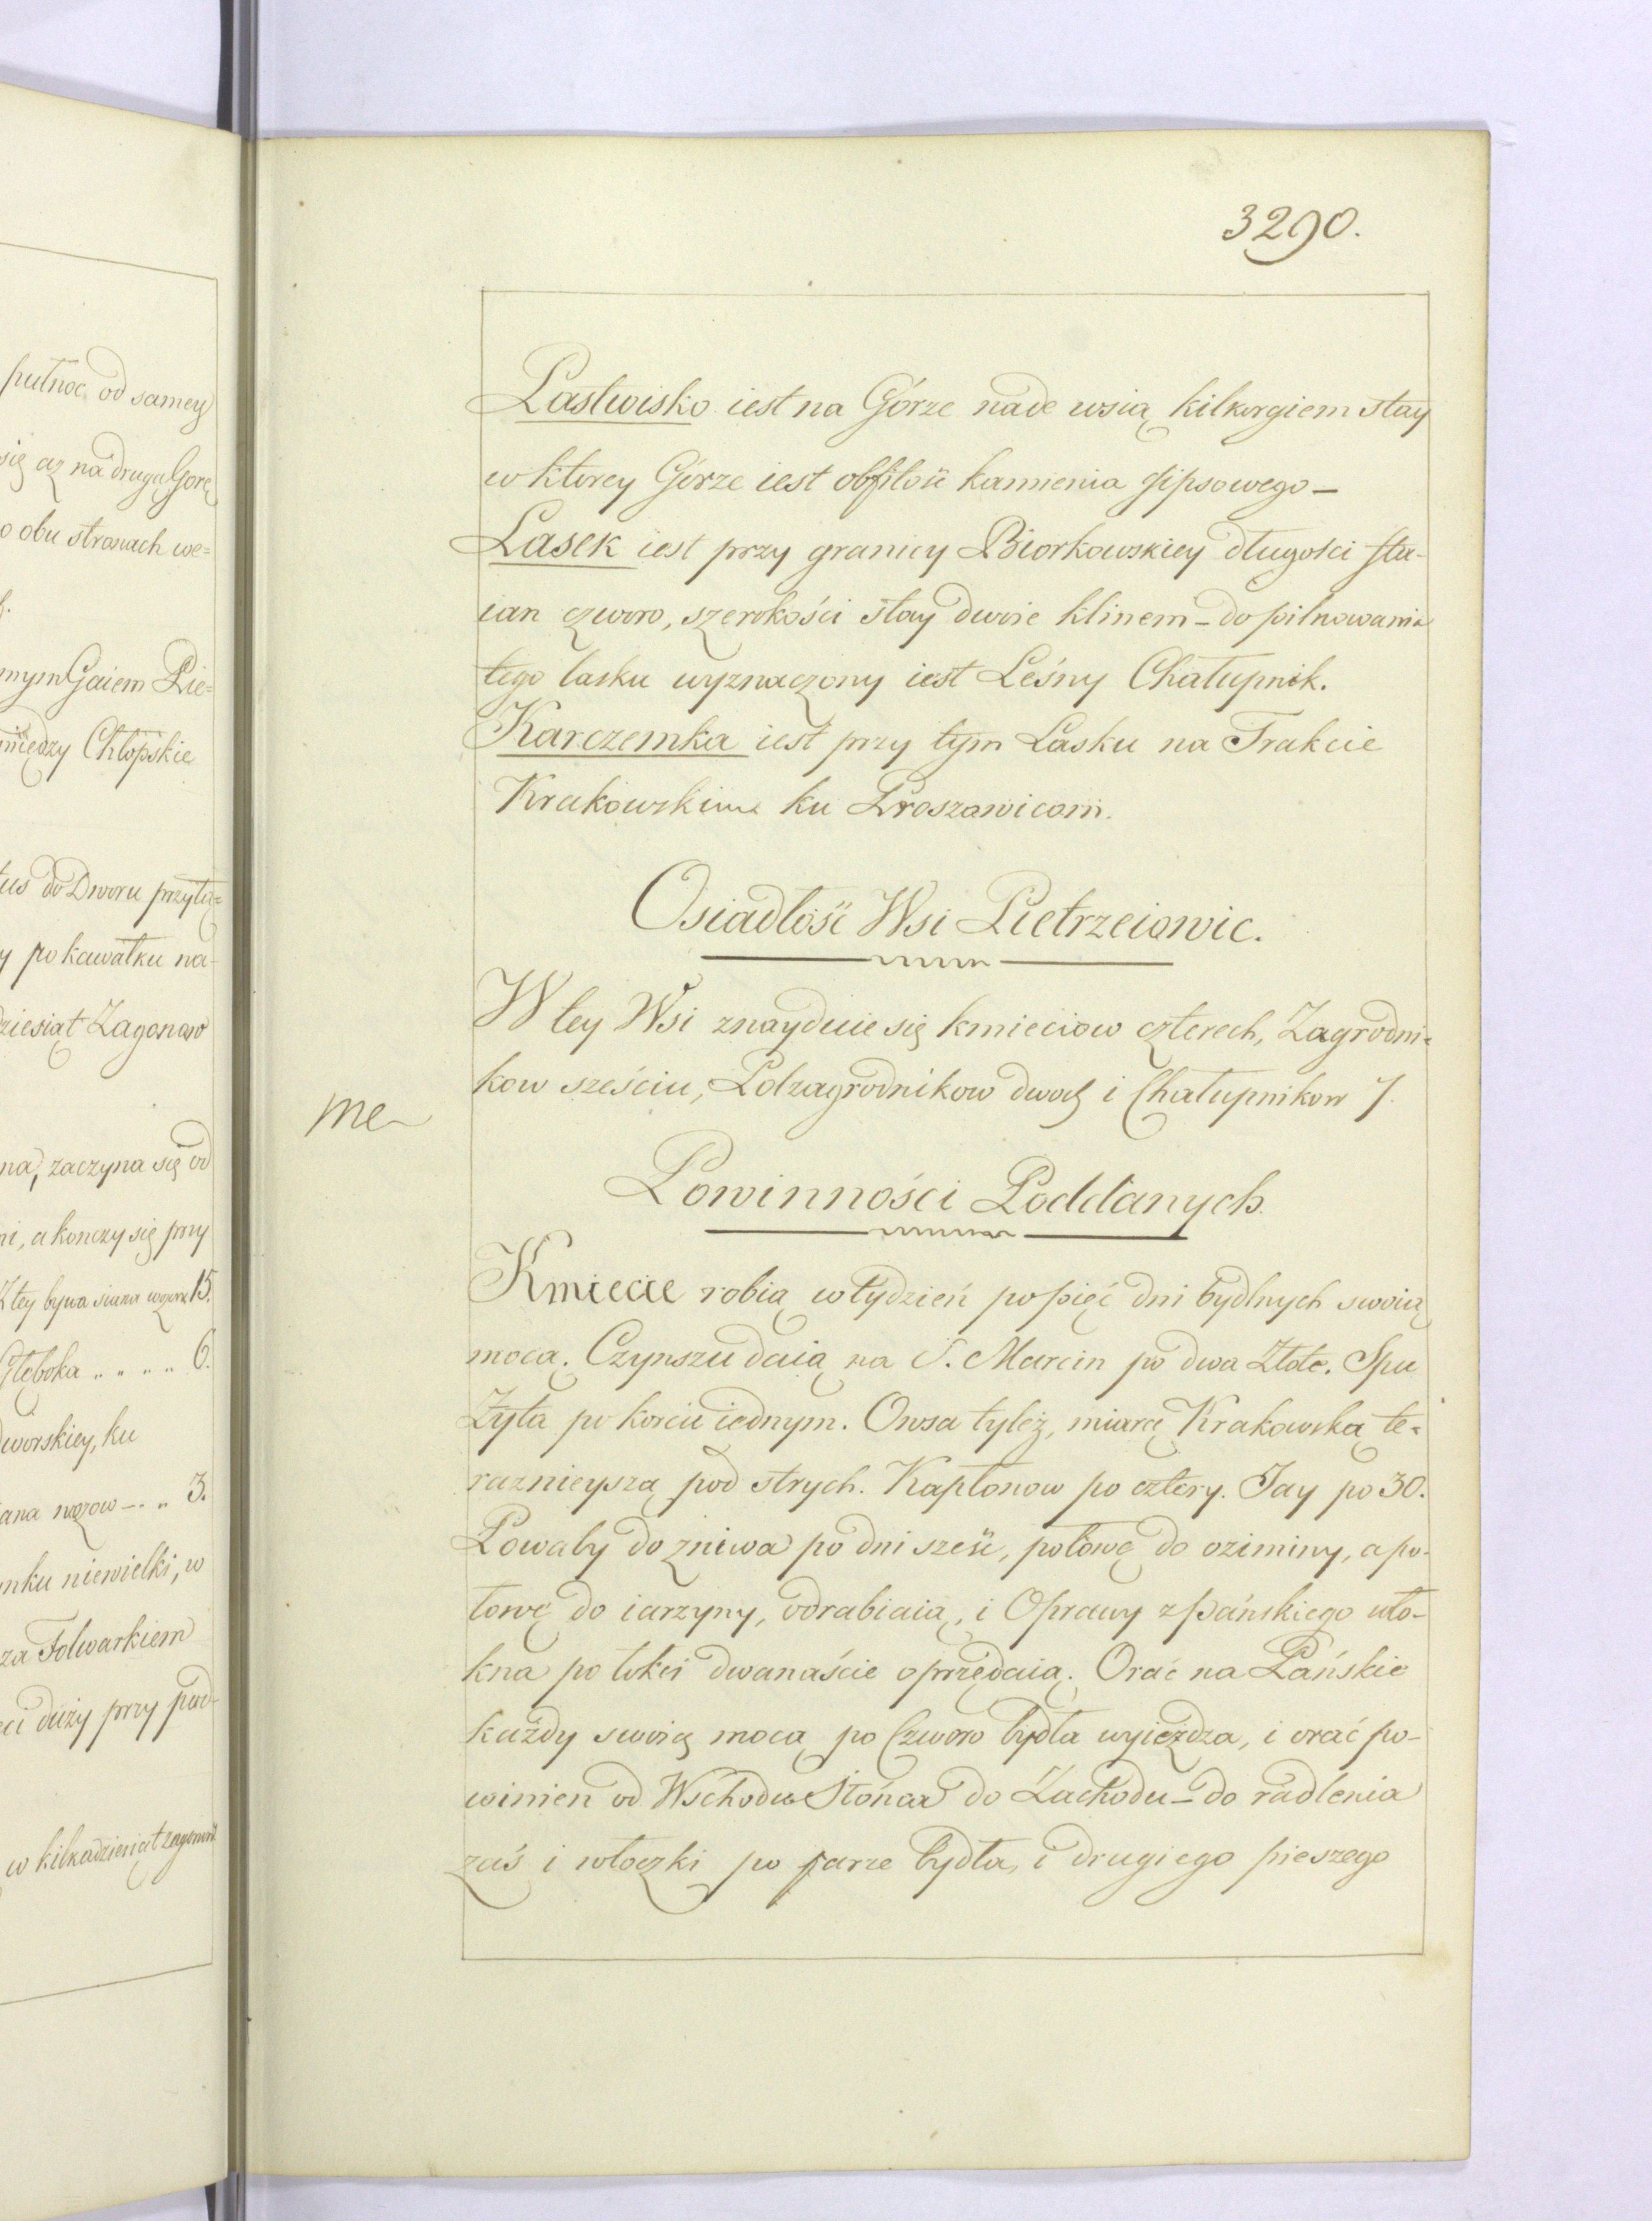 putnoc od samey
się aż na drugą Gorę
o obu stronach we=
mym Gaiem Pie=
między Chłopskie
tus do Dworu przyłą=
y po kawałku na-
dziesiąt Zagonow
na, zaczyna się od
ni, a konczy się przy
Głęboka „ „ „ „ 6.
dworskiey, ku
3.
nku niewielki, w
za Folwarkiem
duży przy pod-
w kilkadziesiąt zagonow
3290.
Pastwisko iest na Górze nade wsią kilkorgiem stay
w ktorey Górze iest obfitość kamienia gipsowego –
Lasek iest przy granicy Biorkowskiey długości sta-
ian czworo, szerokości stay dwoie klinem – do pilnowania
tego lasku wyznaczony iest Leśny Chałupnik.
Karczemka iest przy tym Lasku na Trakcie
Krakowskim ku Proszowicom.
Osiadłość Wsi Pietrzeiowic.
W tey Wsi znayduie się kmieciow czterech, Zagrodni=
kow sześciu, Podzagrodnikow dwoch i Chałupnikow 7.
me
Powinności Poddanych.
Kmiecie robią w tydzień po pięć dni bydlnych swoią
mocą. Czynszu daią na S. Marcin po dwa Złote. Spu
Żyta po korcu iednym. Owsa tyleż, miarą Krakowską te=
raznieyszą pod strych. Kapłonow po cztery. Jay po 30.
Powaby do zniwa po dni sześć, połowę do oziminy, a po-
łowę do iarzyny, odrabiaią, i Oprawy z Pańskiego wło-
kna po łokci dwanaście oprzędaią. Orać na Pańskie
każdy swoią mocą po Czworo bydła wyieżdza, i orać po-
winien od Wschodu Słońca do Zachodu – do radlenia
zaś i włoczki po parze bydła, i drugiego pieszego